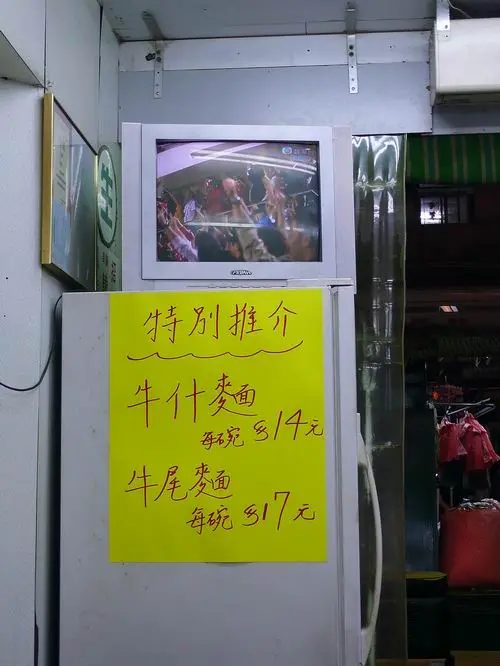 特別推介
牛什麵
每碗 $14元
牛尾麵
每碗 $17元